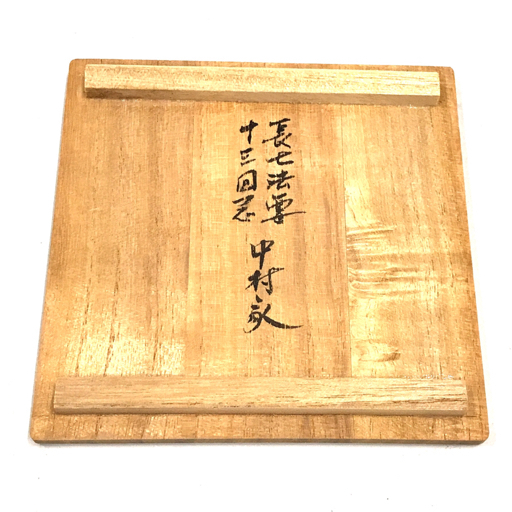 長七法要
十三回忌
中村家